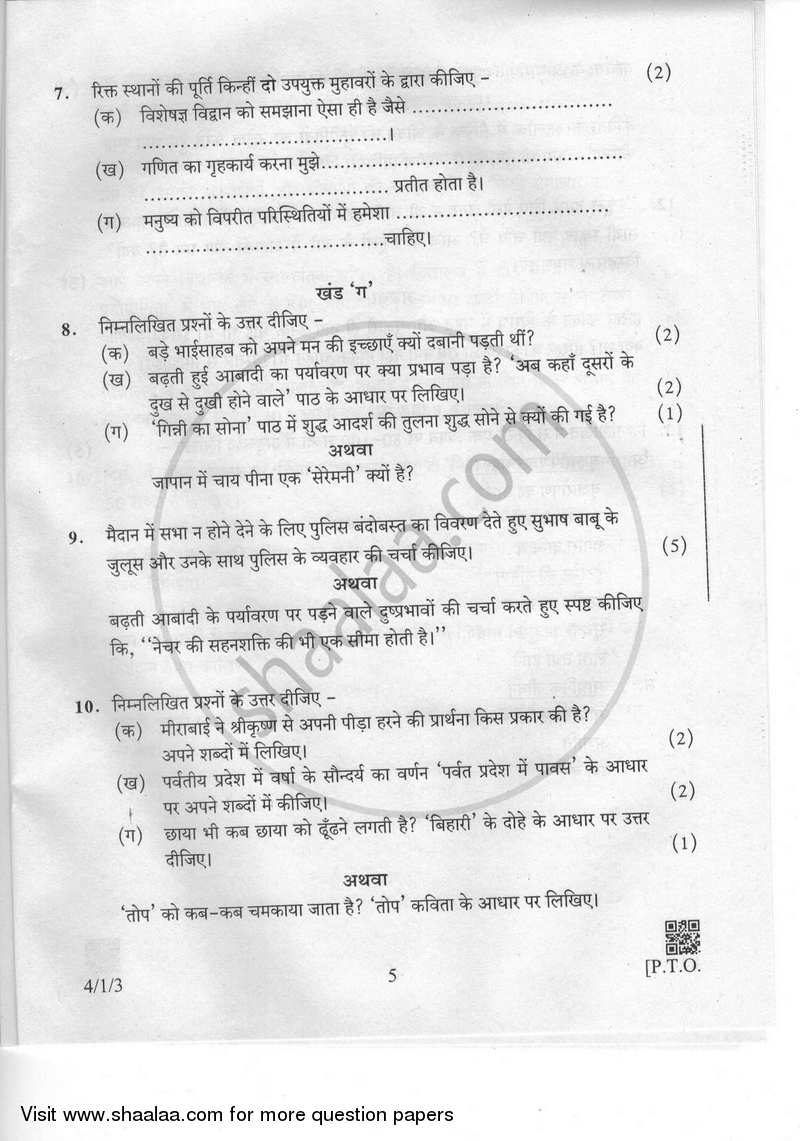 7. रिक्त स्थानों की पूर्ति किन्हीं दो उपयुक्त मुहावरों के द्वारा कीजिए – (2)
(क) विशेषज्ञ विद्वान को समझाना ऐसा ही है जैसे ................................
.......................................।
(ख) गणित का गृहकार्य करना मुझे................................................
....................................... प्रतीत होता है।
(ग) मनुष्य को विपरीत परिस्थितियों में हमेशा ..................................
.......................................चाहिए।
खंड ‘ग’
8. निम्नलिखित प्रश्नों के उत्तर दीजिए –
(क) बड़े भाईसाहब को अपने मन की इच्छाएँ क्यों दबानी पड़ती थीं? (2)
(ख) बढ़ती हुई आबादी का पर्यावरण पर क्या प्रभाव पड़ा है? ‘अब कहाँ दूसरों के
दुख से दुखी होने वाले’ पाठ के आधार पर लिखिए। (2)
(ग) ‘गिन्नी का सोना’ पाठ में शुद्ध आदर्श की तुलना शुद्ध सोने से क्यों की गई है? (1)
अथवा
जापान में चाय पीना एक ‘सेरेमनी’ क्यों है?
9. मैदान में सभा न होने देने के लिए पुलिस बंदोबस्त का विवरण देते हुए सुभाष बाबू के
जुलूस और उनके साथ पुलिस के व्यवहार की चर्चा कीजिए। (5)
अथवा
बढ़ती आबादी के पर्यावरण पर पड़ने वाले दुष्प्रभावों की चर्चा करते हुए स्पष्ट कीजिए
कि, ‘‘नेचर की सहनशक्ति की भी एक सीमा होती है।’’
10. निम्नलिखित प्रश्नों के उत्तर दीजिए –
(क) मीराबाई ने श्रीकृष्ण से अपनी पीड़ा हरने की प्रार्थना किस प्रकार की है?
अपने शब्दों में लिखिए। (2)
(ख) पर्वतीय प्रदेश में वर्षा के सौन्दर्य का वर्णन ‘पर्वत प्रदेश में पावस’ के आधार
पर अपने शब्दों में कीजिए। (2)
(ग) छाया भी कब छाया को ढूँढने लगती है? ‘बिहारी’ के दोहे के आधार पर उत्तर
दीजिए। (1)
अथवा
‘तोप’ को कब-कब चमकाया जाता है? ‘तोप’ कविता के आधार पर लिखिए।
4/1/3
5
[P.T.O.
shaalaa.com
Visit www.shaalaa.com for more question papers